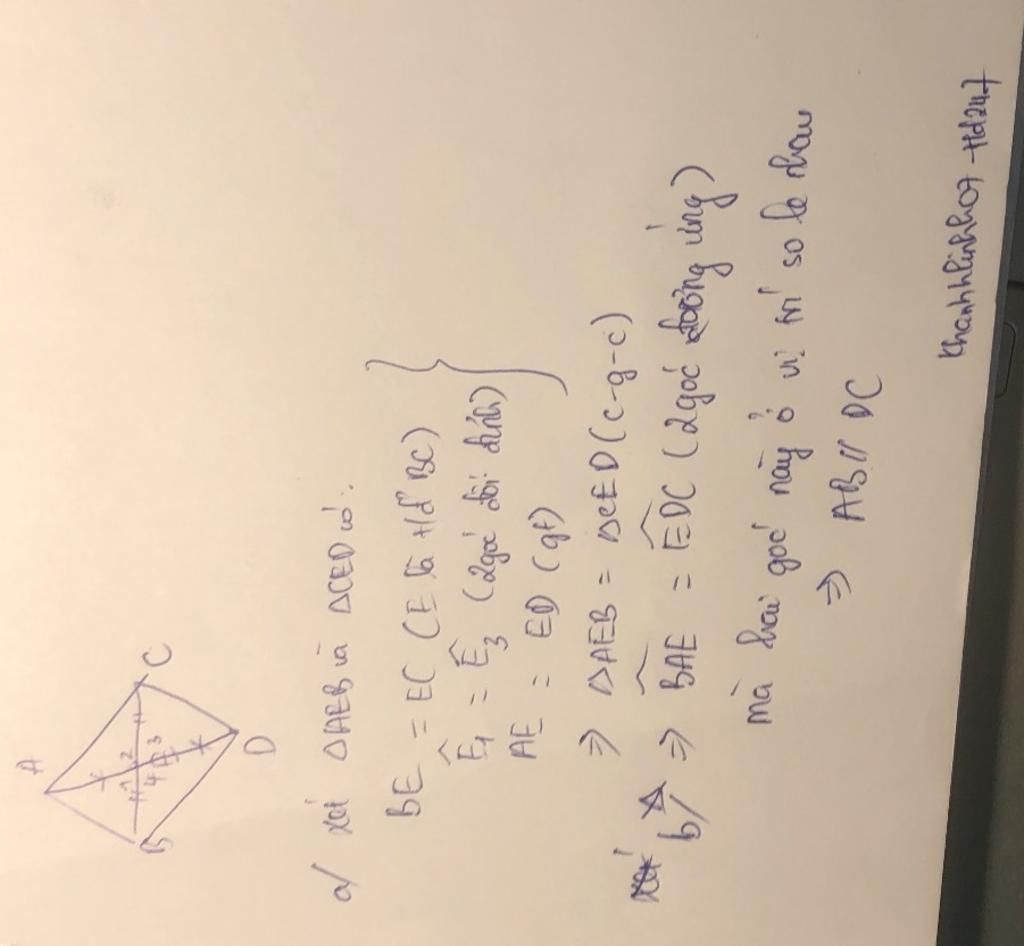 A
B
C
D
1 2
4 3
a/ xét ΔAEB và ΔCED có:
BE = EC (E là t/đ BC)
Ê1 = Ê3 (2 góc đối đỉnh)
AE = ED (gt)
⇒ ΔAEB = ΔCED (c-g-c)
b/ ⇒ \widehat{BAE} = \widehat{EDC} (2 góc tương ứng)
mà hai góc này ở vị trí so le nhau
⇒ AB // DC
khanhhlinhh07 - Hd247